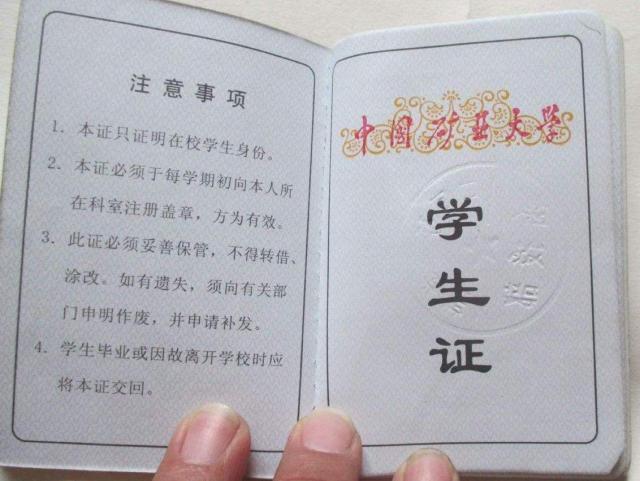 注意事项
1. 本证只证明在校学生身份。
2. 本证必须于每学期初向本人所
在科室注册盖章，方为有效。
3. 此证必须妥善保管，不得转借、
涂改。如有遗失，须向有关部
门申明作废，并申请补发。
4. 学生毕业或因故离开学校时应
将本证交回。
中国矿业大学
学
生
证